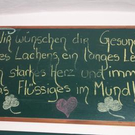 Wir wünschen dir Gesund
es Lachens, ein langes Le
n starkes Herz und imm
as Flüssiges im Mund!